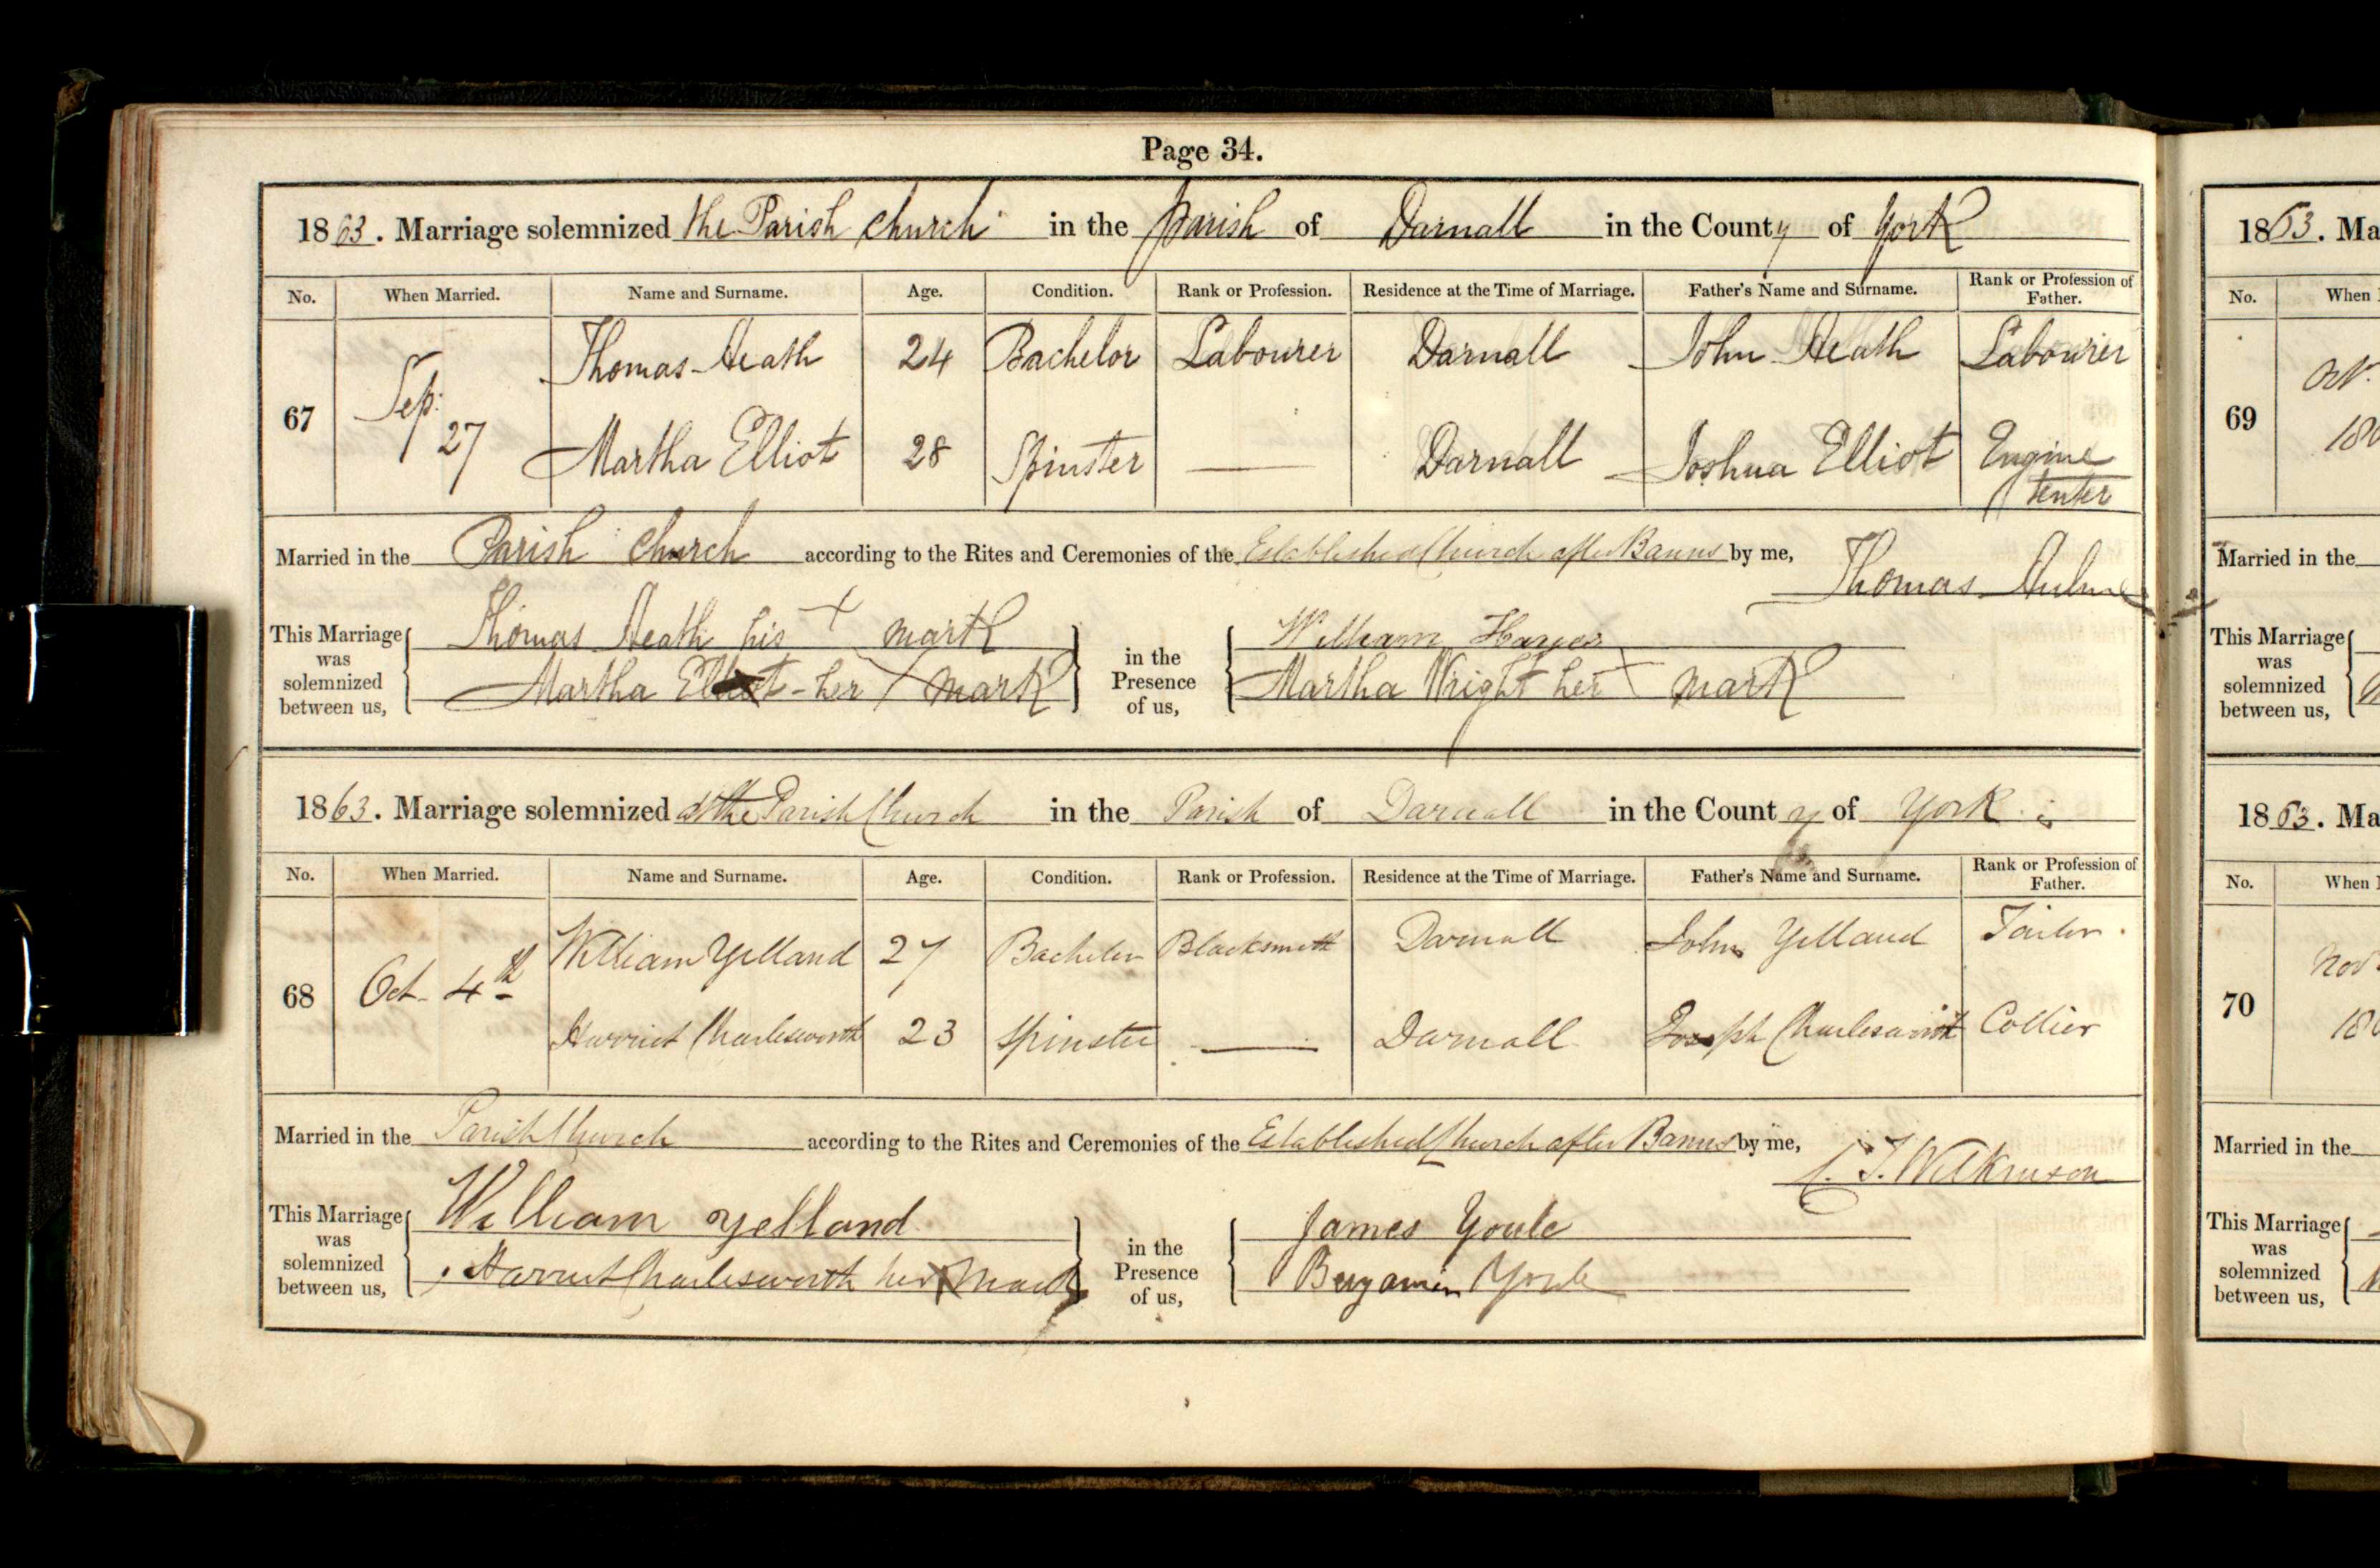 Page 34.
1863. Marriage solemnized the Parish Church in the Parish of Darnall in the County of York
No. When Married. Name and Surname. Age. Condition. Rank or Profession. Residence at the Time of Marriage. Father's Name and Surname. Rank or Profession of Father.
67 Sep: 27 Thomas Heath 24 Bachelor Labourer Darnall John Heath Labourer
Martha Elliot 28 Spinster — Darnall Joshua Elliot Engine tenter
Married in the Parish Church according to the Rites and Ceremonies of the Established Church after Banns by me, Thomas
This Marriage was solemnized between us, Thomas Heath his + mark in the Presence of us, William
Martha Elliot her X mark Martha Wright her + mark
1863. Marriage solemnized at the Parish Church in the Parish of Darnall in the County of York
No. When Married. Name and Surname. Age. Condition. Rank or Profession. Residence at the Time of Marriage. Father's Name and Surname. Rank or Profession of Father.
68 Oct. 4th William Yelland 27 Bachelor Blacksmith Darnall John Yelland Tailor.
Harriet Charlesworth 23 Spinster — Darnall Joseph Charlesworth Collier
Married in the Parish Church according to the Rites and Ceremonies of the Established Church after Banns by me, C. J. Wilkinson
This Marriage was solemnized between us, William Yelland in the Presence of us, James Youle
Harriet Charlesworth her X Mark Benjamin Youle
1863. Ma
No. When
69 Oct.
186
Married in the
This Marriage was solemnized between us,
1863. Ma
No. When
70 Nov
186
Married in the
This Marriage was solemnized between us,